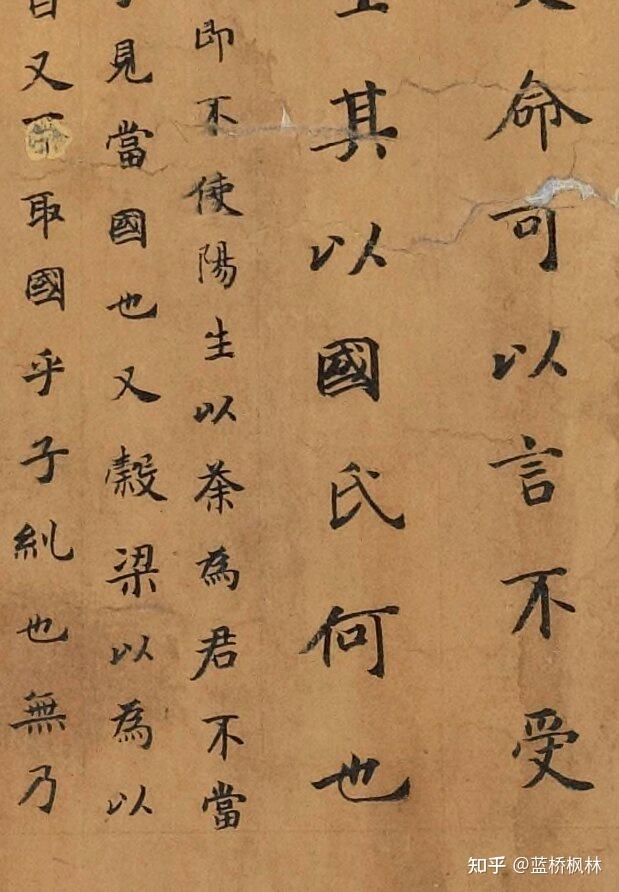 命可以言不受
其以國氏何也
即不使陽生以荼為君不當
見當國也又穀梁以為以
又取國乎子糺也無乃
知乎 @蓝桥枫林